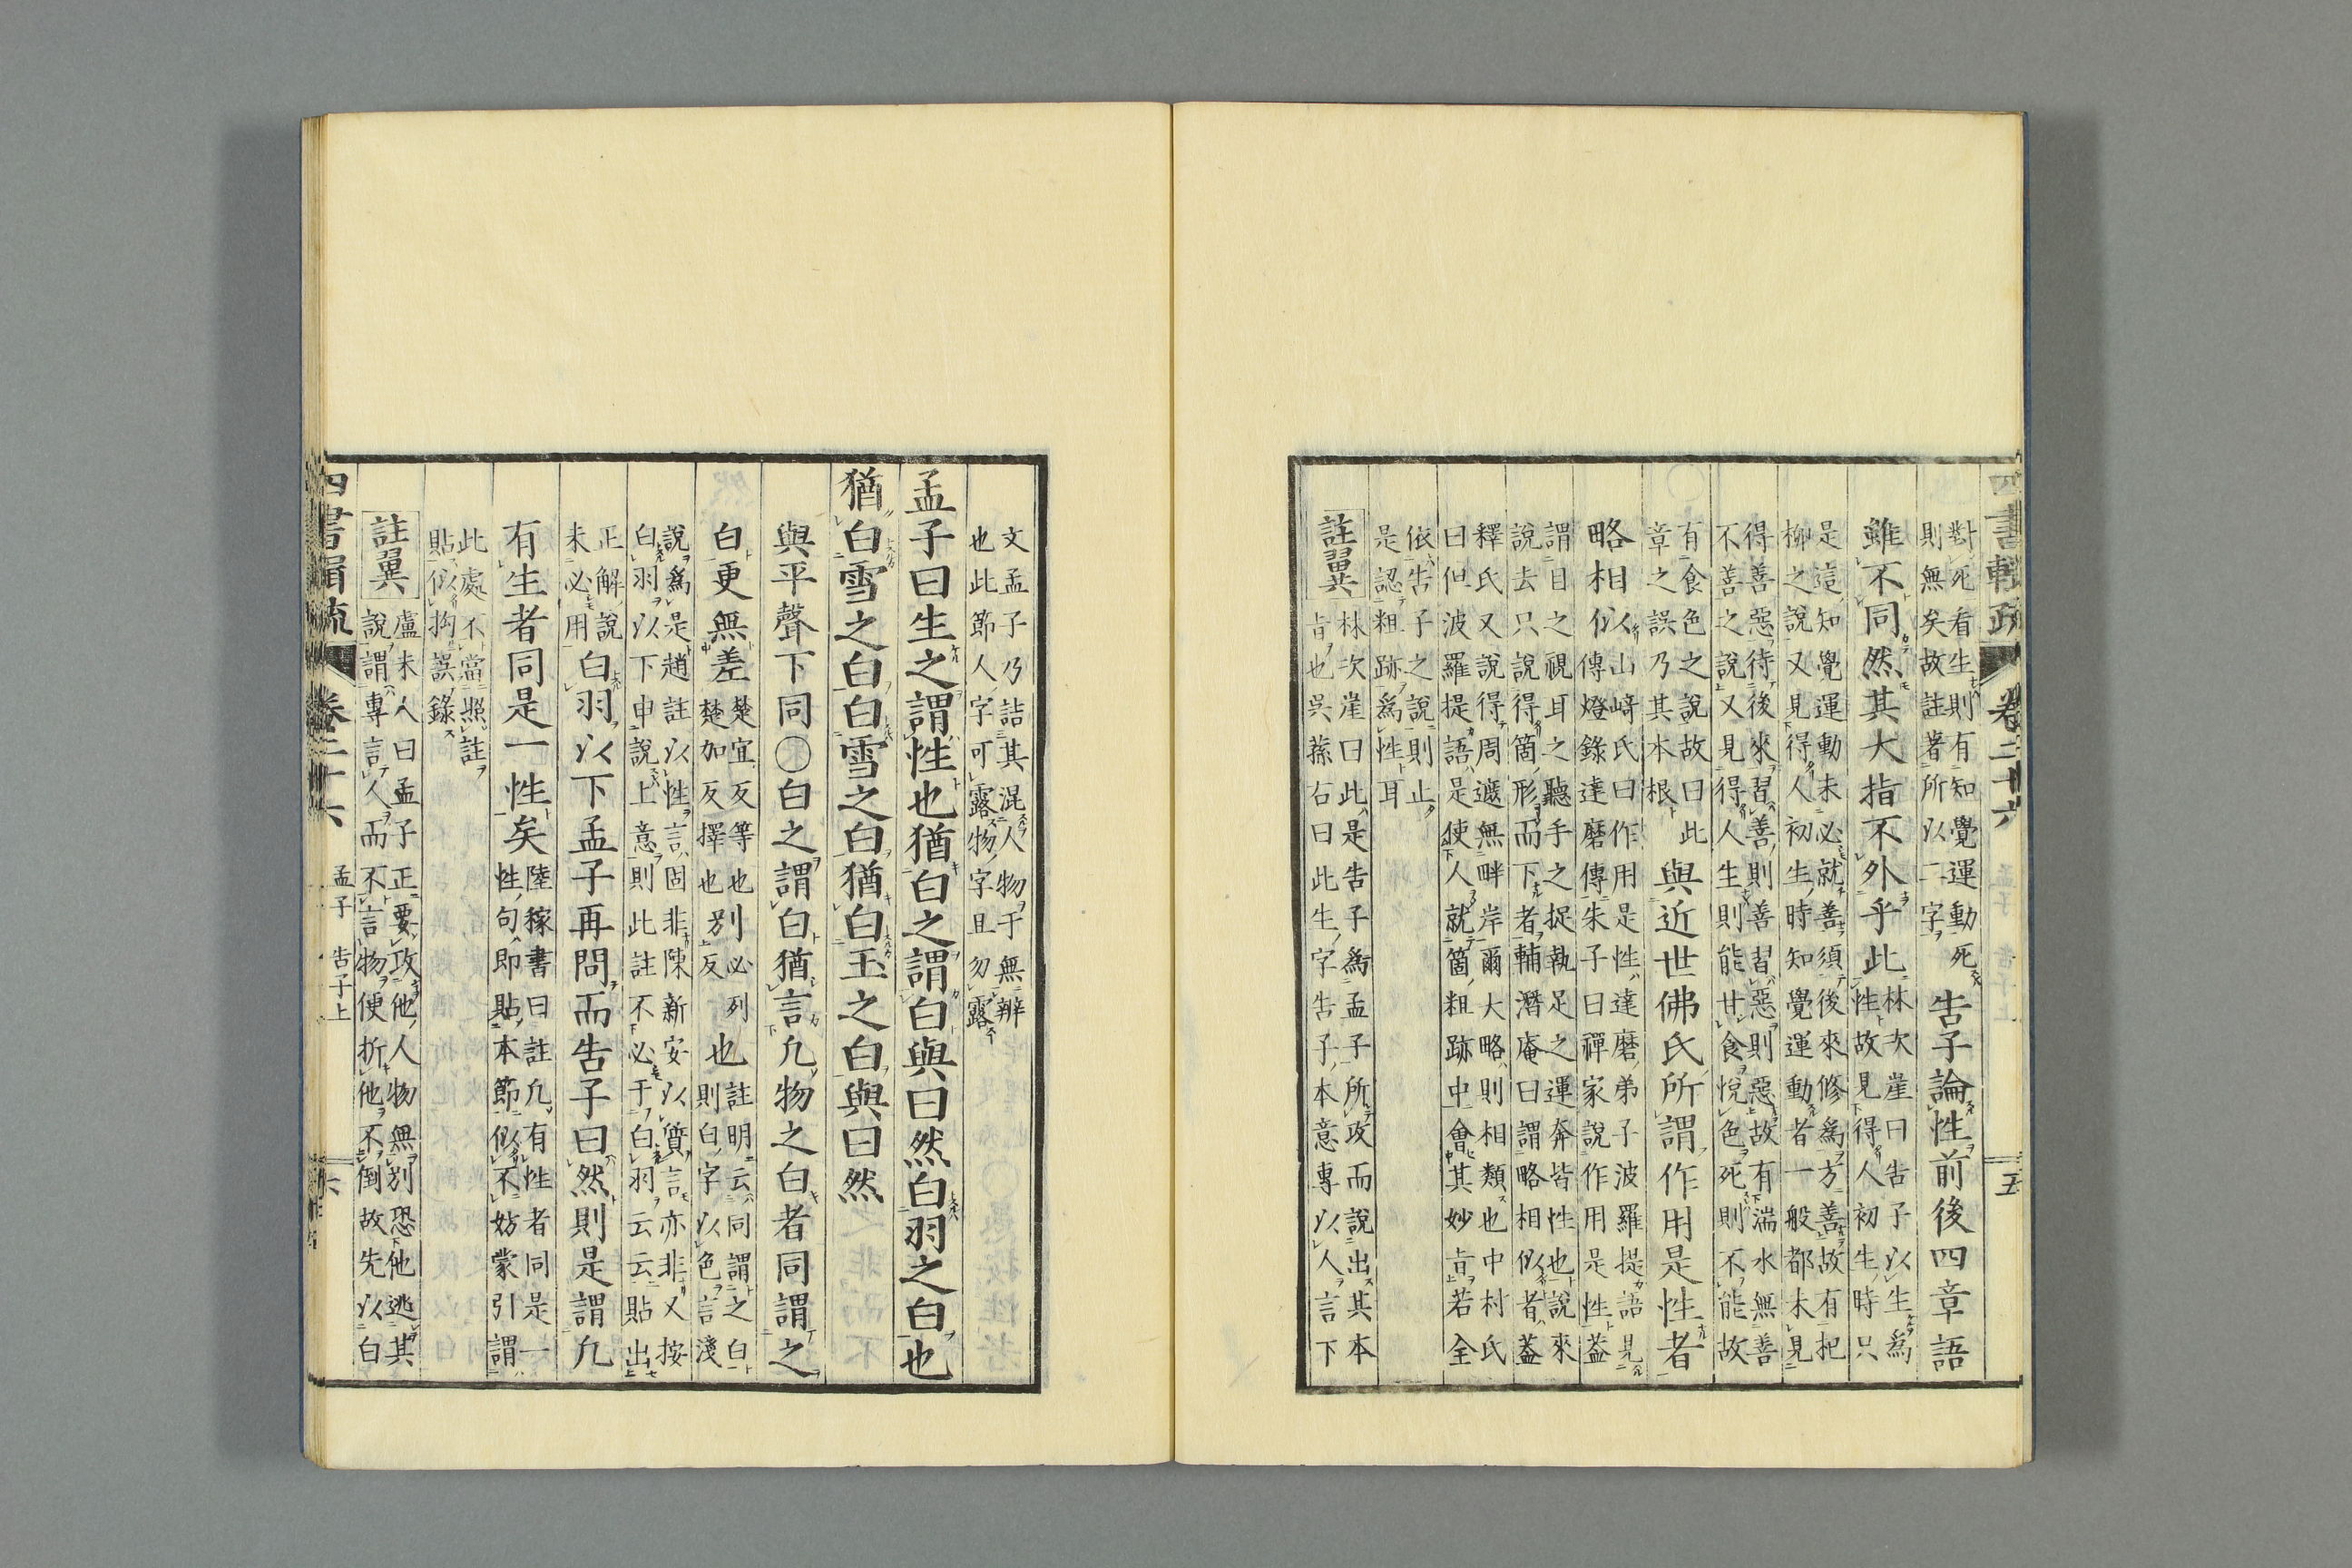 對死看生則有知覺運動死
則無矣故註著所以二字
告子論性前後四章語
雖不同然其大指不外乎此
林次崖曰告子以生爲
性故見得人初生時只
是這知覺運動未必就善須後來修爲方善故有杞
柳之說又見得人初生時知覺運動者一般都未見
得善惡待後來習善則善習惡則惡故有湍水無善
不善之說又見得人生則能甘食悅色死則不能故
有食色之說故曰此
章之誤乃其本根
與近世佛氏所謂作用是性者
略相似
山﨑氏曰作用是性達磨弟子波羅提語見
傳燈錄達磨傳朱子曰禪家說作用是性蓋
謂目之視耳之聽手之捉執足之運奔皆性也說來
說去只說得箇形而下者輔潛庵曰謂略相似者蓋
釋氏又說得周遮無畔岸爾大略則相類也中村氏
曰但波羅提語是使人就箇粗跡中會其妙㫖若全
依告子之說則止
是認粗跡爲性耳
註翼
林次崖曰此是告子爲孟子所攻而說出其本
㫖也吳蓀石曰此生字告子本意專以人言下
四書輯疏 卷二十六 五
文孟子乃詰其混人物于無辨
也此節人字可露物字且勿露
孟子曰生之謂性也猶白之謂白與曰然白羽之白也
猶白雪之白白雪之白猶白玉之白與曰然
與平聲下同〇白之謂白猶言凡物之白者同謂之
白更無差
楚宜反等也別必列
楚加反擇也
也
註明云同謂之白
則白字以色言淺
說爲是趙註以性言固非陳新安以質言亦非又按
白羽以下申說上意則此註不必于白羽云云貼出
正解說
未必用
白羽以下孟子再問而告子曰然則是謂凡
有生者同是一性矣
陸稼書曰註凡有性者同是一
性句即貼本節似不妨蒙引謂
此處不當照註
貼似拘誤錄
註翼
盧未人曰孟子正要攻他人物無別恐他逃其
說謂專言人而不言物便折他不倒故先以白
四書輯疏 卷二十六 孟子 告子上 六